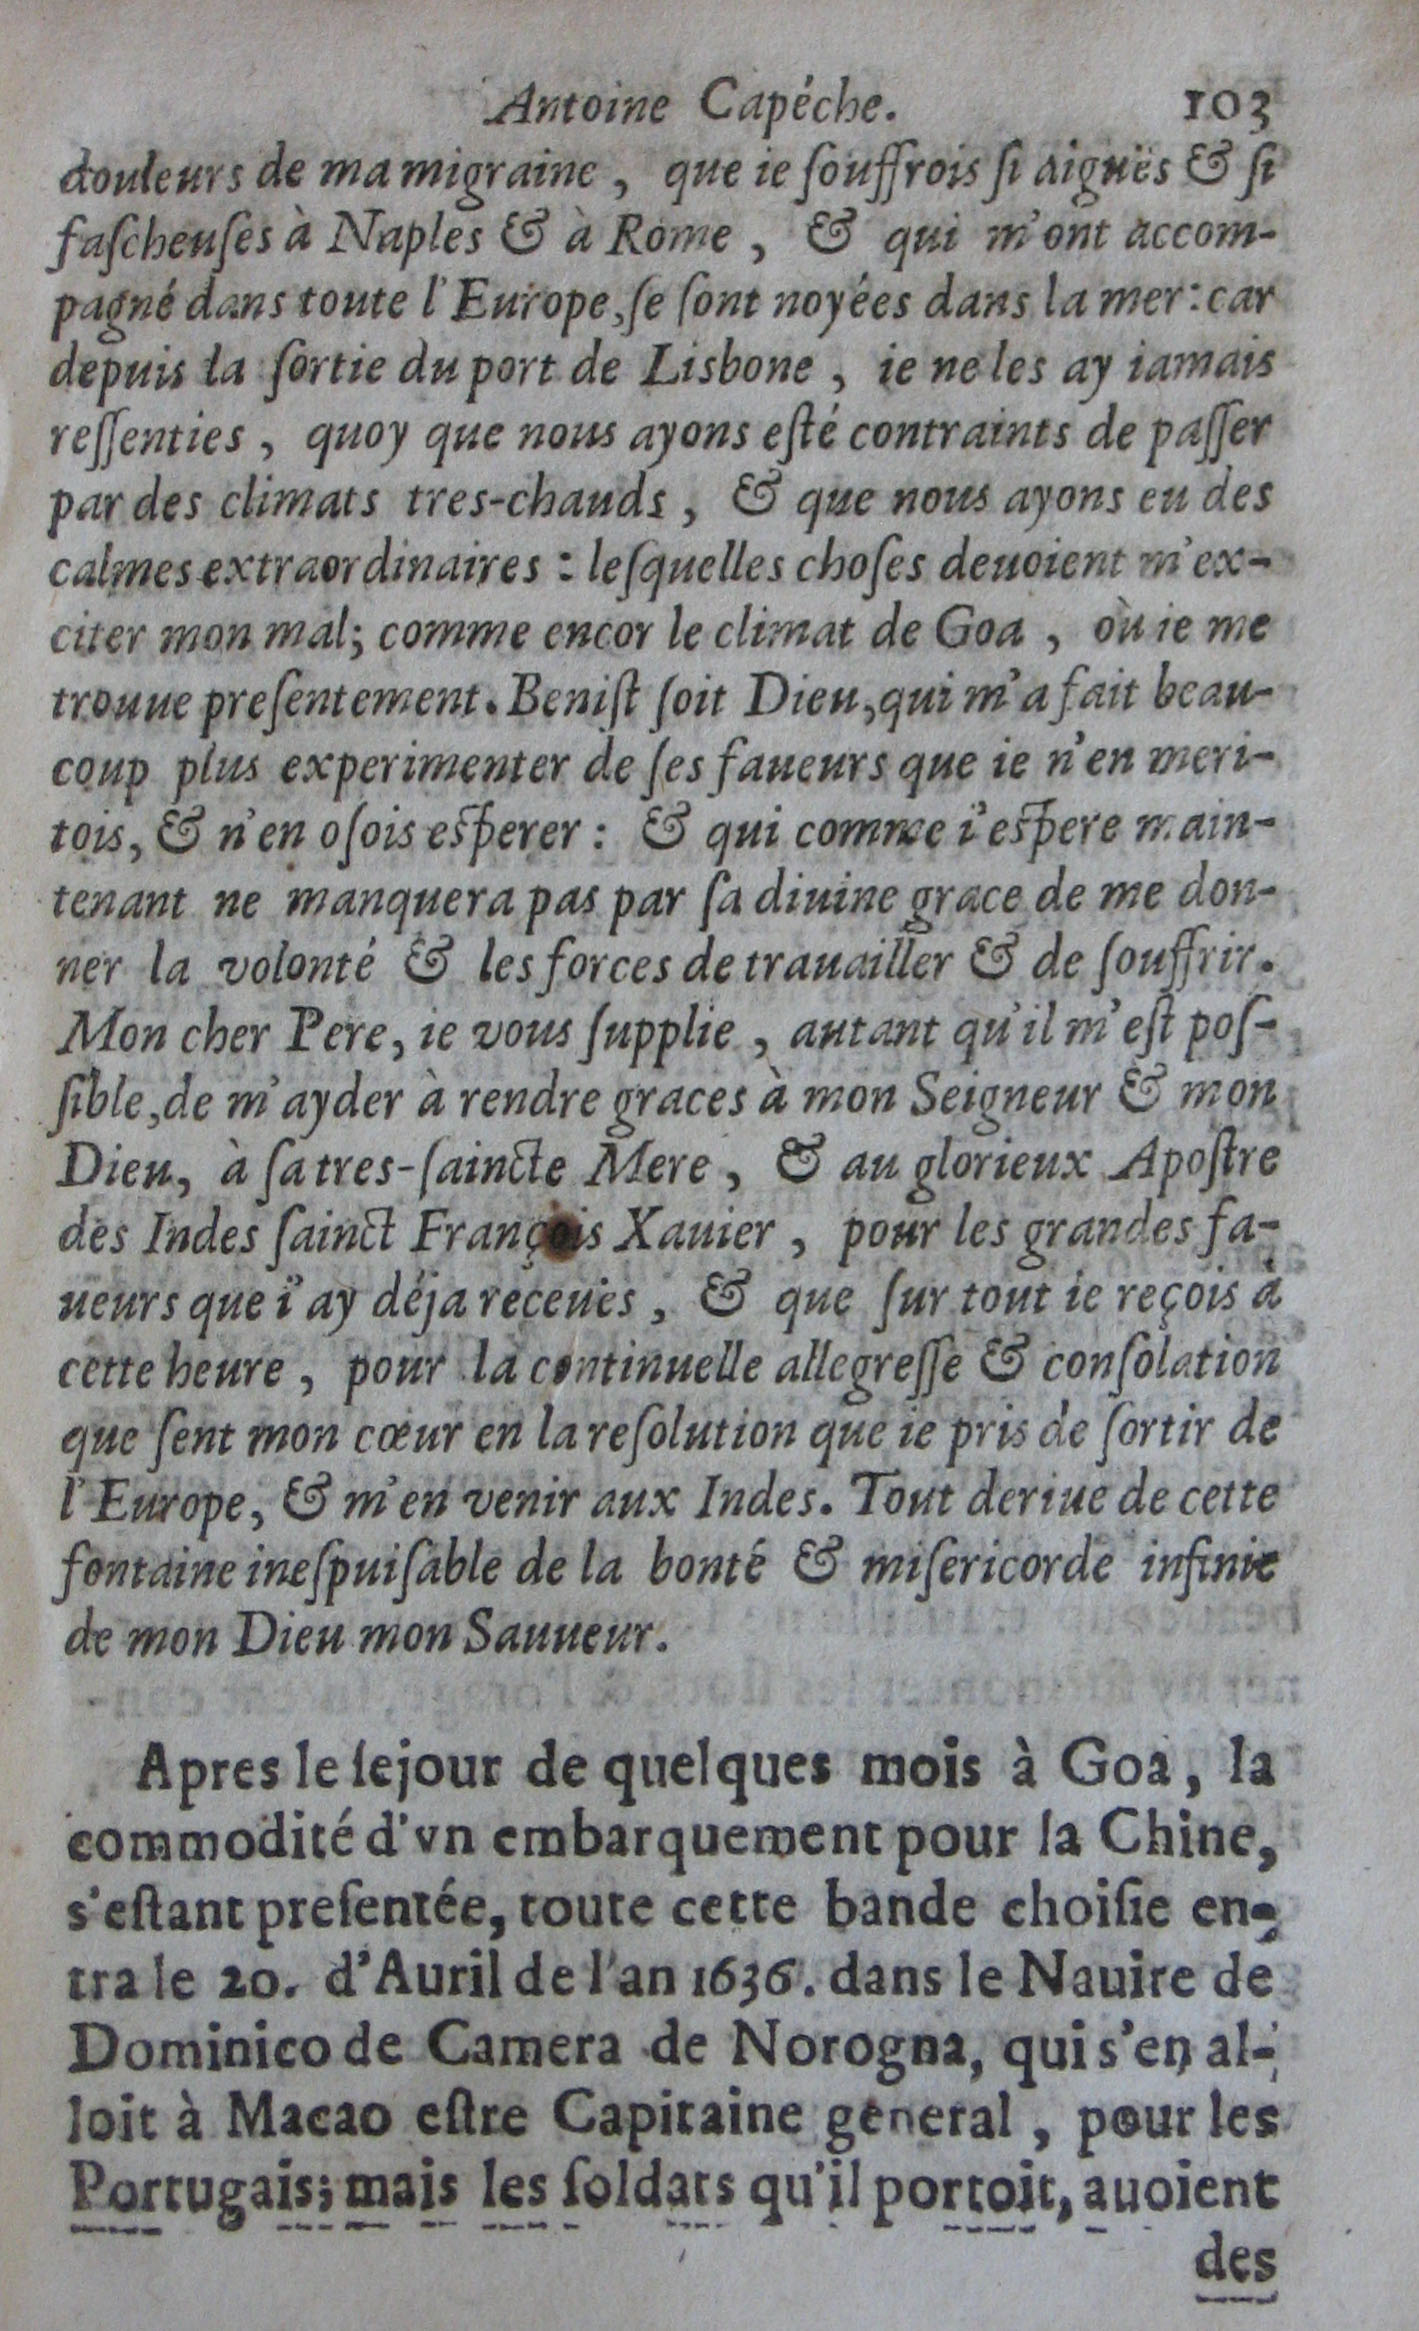 Antoine Capéche. 103
douleurs de ma migraine, que ie ſouffrois ſi aiguës & ſi
faſcheuſes à Naples & à Rome, & qui m'ont accom-
pagné dans toute l'Europe, ſe ſont noyées dans la mer: car
depuis la ſortie du port de Lisbone, ie ne les ay iamais
reſſenties, quoy que nous ayons eſté contraints de paſſer
par des climats tres-chauds, & que nous ayons eu des
calmes extraordinaires: leſquelles choſes deuoient m'ex-
citer mon mal; comme encor le climat de Goa, où ie me
trouue preſentement. Beniſt ſoit Dieu, qui m'a fait beau-
coup plus experimenter de ſes faueurs que ie n'en meri-
tois, & n'en oſois eſperer: & qui comme i'eſpere main-
tenant ne manquera pas par ſa diuine grace de me don-
ner la volonté & les forces de trauailler & de ſouffrir.
Mon cher Pere, ie vous ſupplie, autant qu'il m'eſt poſ-
ſible, de m'ayder à rendre graces à mon Seigneur & mon
Dieu, à ſa tres-ſaincte Mere, & au glorieux Apoſtre
des Indes ſainct François Xauier, pour les grandes fa-
ueurs que i'ay déja receuës, & que ſur tout ie reçois à
cette heure, pour la continuelle allegreſſe & conſolation
que ſent mon cœur en la reſolution que ie pris de ſortir de
l'Europe, & m'en venir aux Indes. Tout deriue de cette
fontaine ineſpuiſable de la bonté & miſericorde infinie
de mon Dieu mon Sauueur.
Apres le ſejour de quelques mois à Goa, la
commodité d'vn embarquement pour la Chine,
s'eſtant preſentée, toute cette bande choiſie en-
tra le 20. d'Auril de l'an 1636. dans le Nauire de
Dominico de Camera de Norogna, qui s'en al-
loit à Macao eſtre Capitaine general, pour les
Portugais; mais les ſoldats qu'il portoit, auoient
des